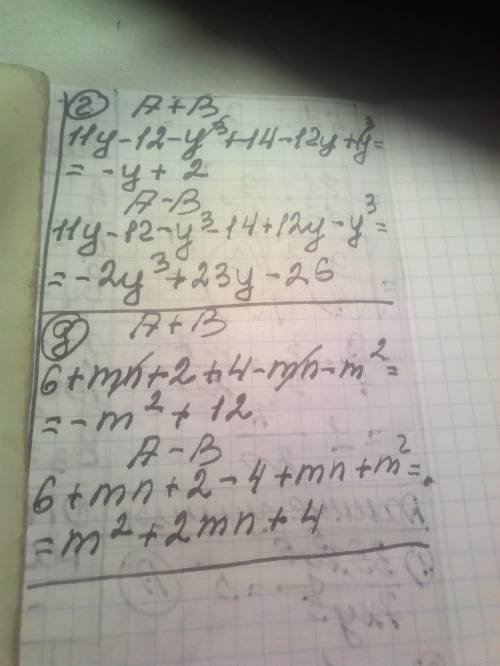 г) A+B
11y-12-y³+14-12y+y³=
= -y + 2
A-B
11y-12-y³-14+12y-y³=
= -2y³+23y-26
g) A+B
6+mn+2+4-mn-m²=
= -m² + 12
A-B
6+mn+2-4+mn+m²=
= m²+2mn+4